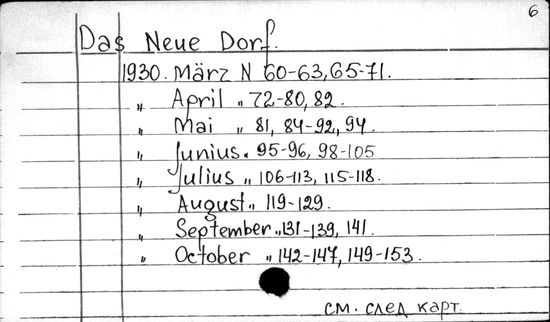 6
Das Neue Dorf.
1930. März N 60-63, 65-71.
" April " 72-80, 82.
" Mai " 81, 84-92, 94.
" Junius " 95-96, 98-105
" Julius " 106-113, 115-118.
" August " 119-129.
" September " 131-139, 141.
" October " 142-147, 149-153.
см. след карт.